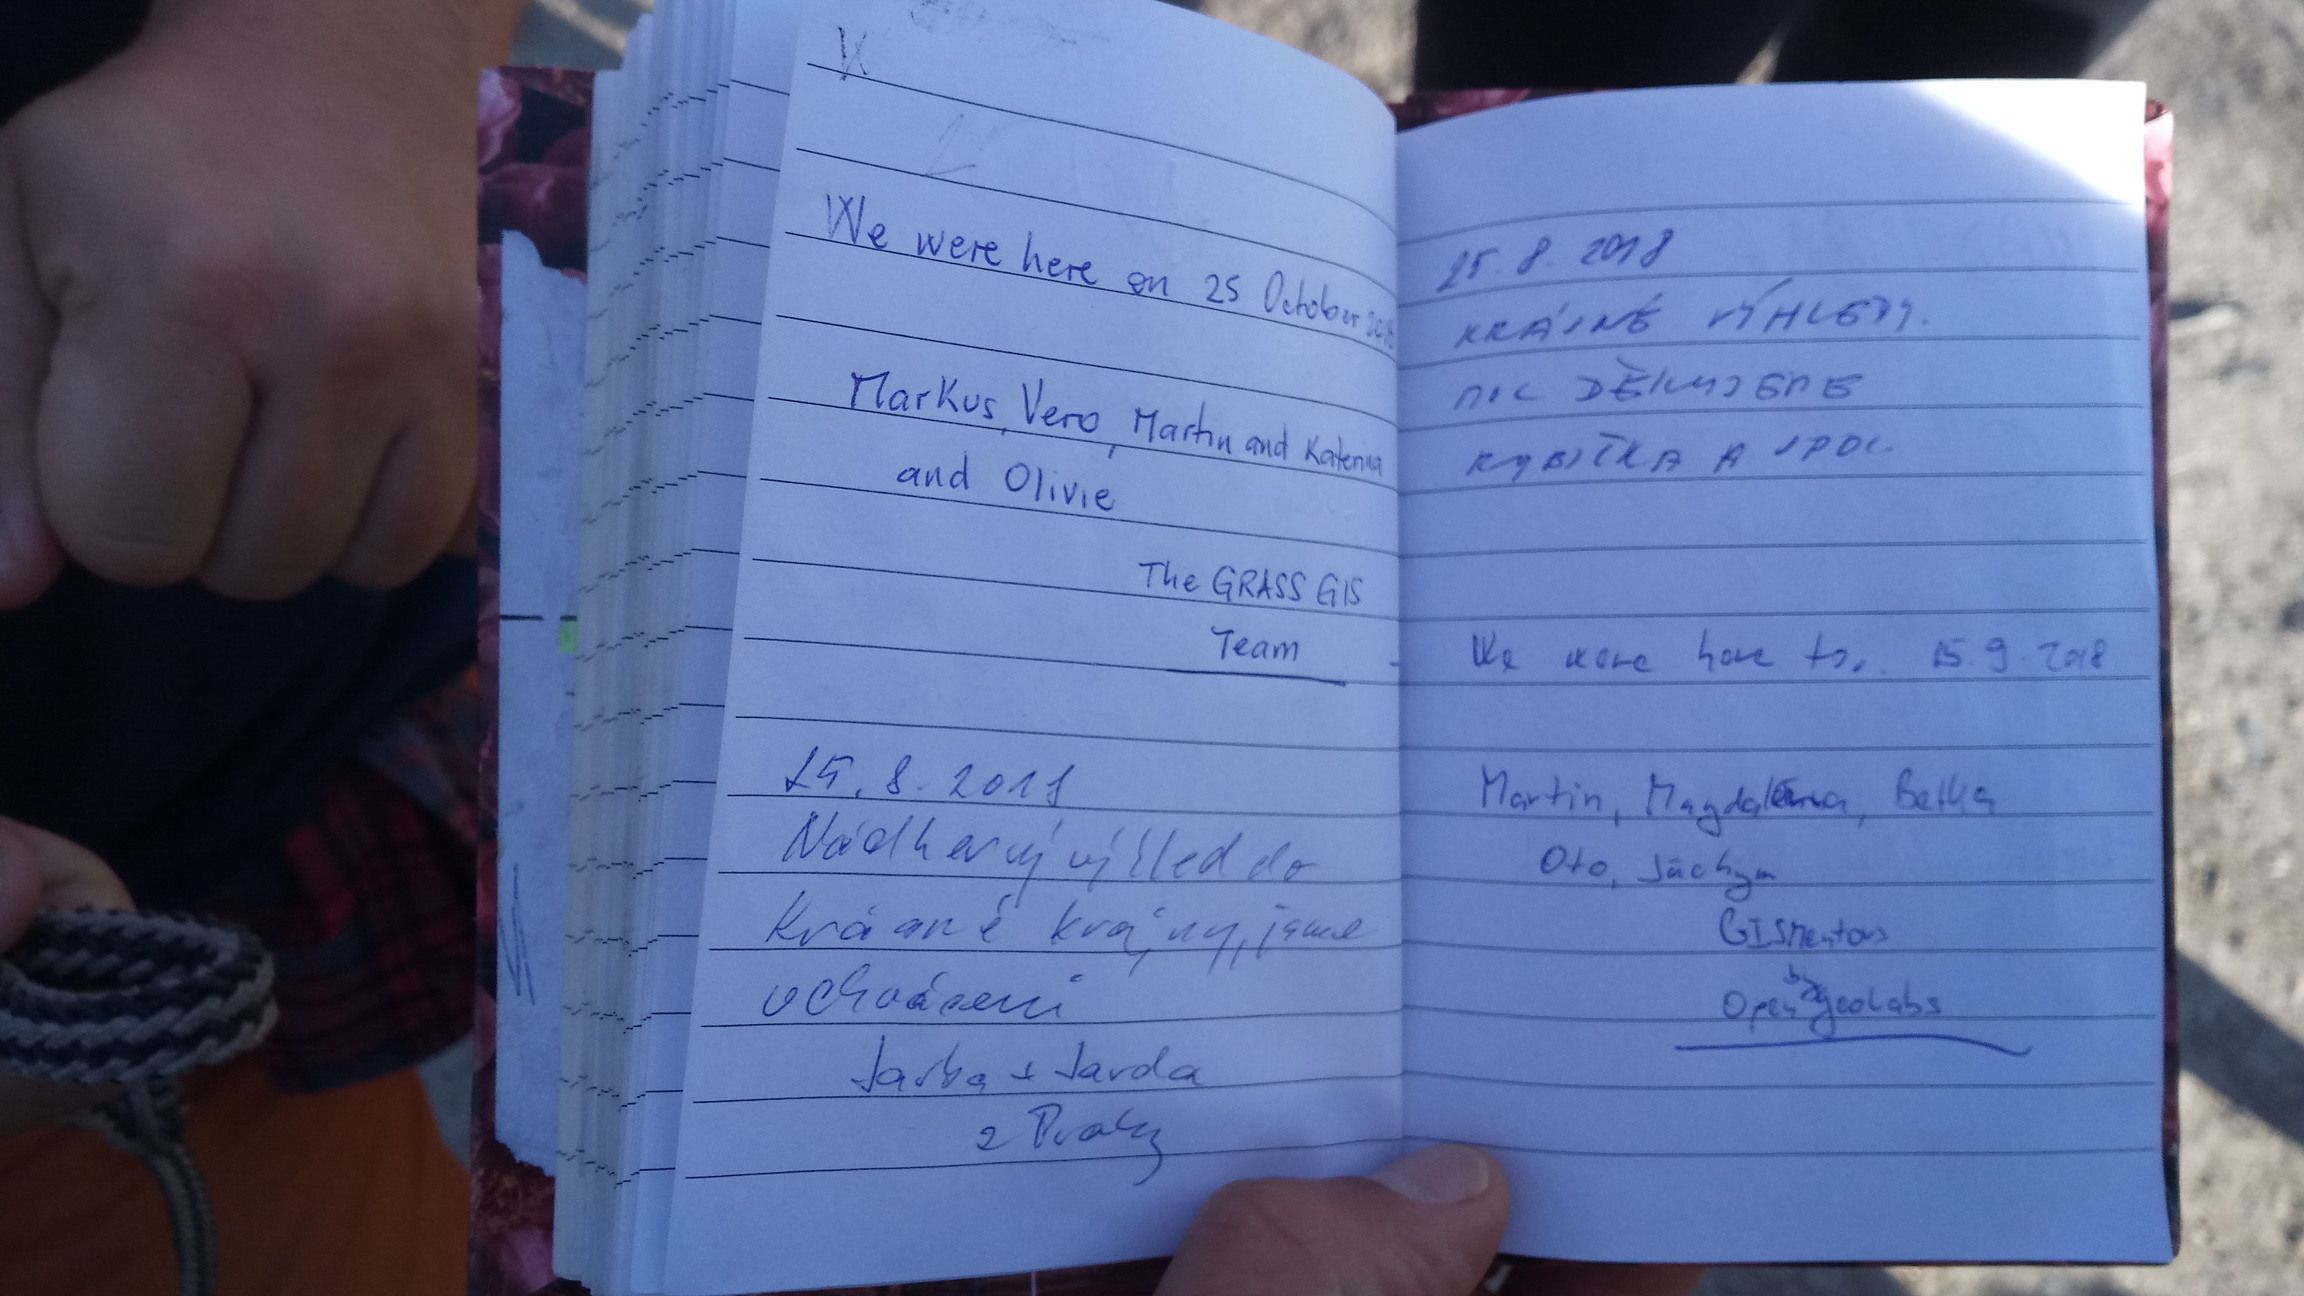 We were here on 25 October 2018
Markus, Vero, Martin and Katerina
and Olivie
The GRASS GIS
Team
25. 8. 2018
Nádherný výhled do
krásné krajiny, jsme
uchváceni
Jarka + Jarda
z Prahy
25. 8. 2018
KRÁSNÉ VÝHLEDY.
MOC DĚKUJEME
RYBIČKA A SPOL.
We were here to.. 15. 9. 2018
Martin, Magdaléna, Betka
Oto, Jáchym
GISMentors
by
OpenGeoLabs